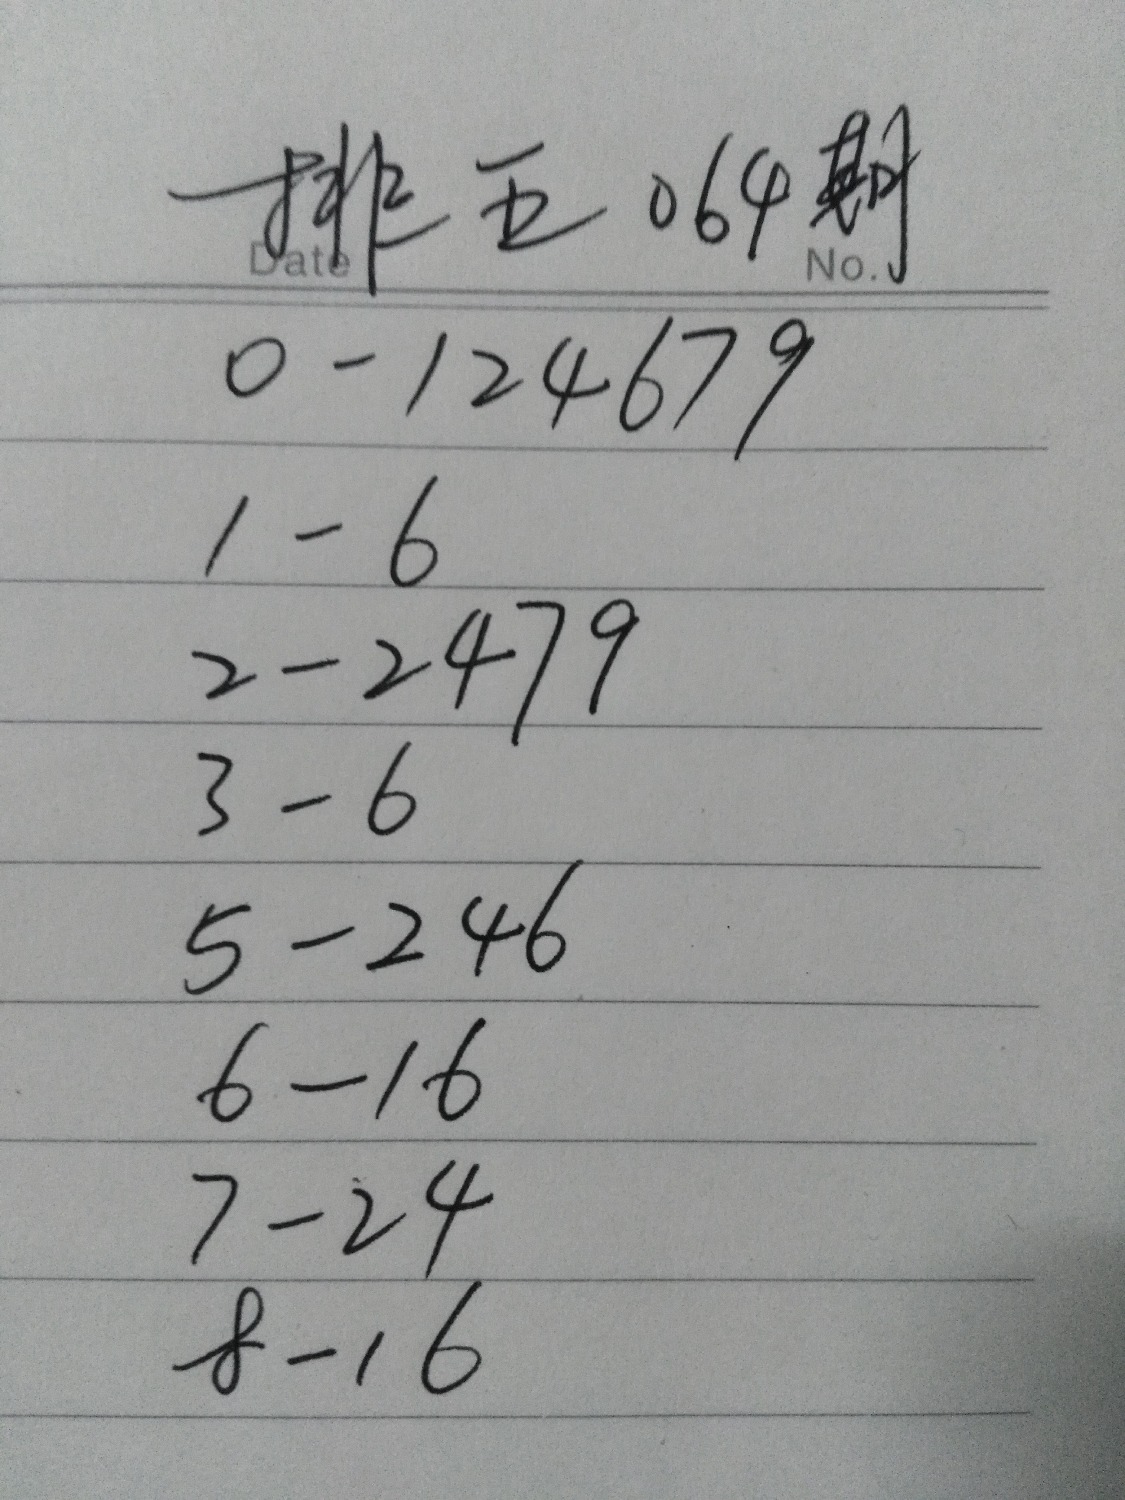 排五 064期
Date No.
0-124679
1-6
2-2479
3-6
5-246
6-16
7-24
8-16